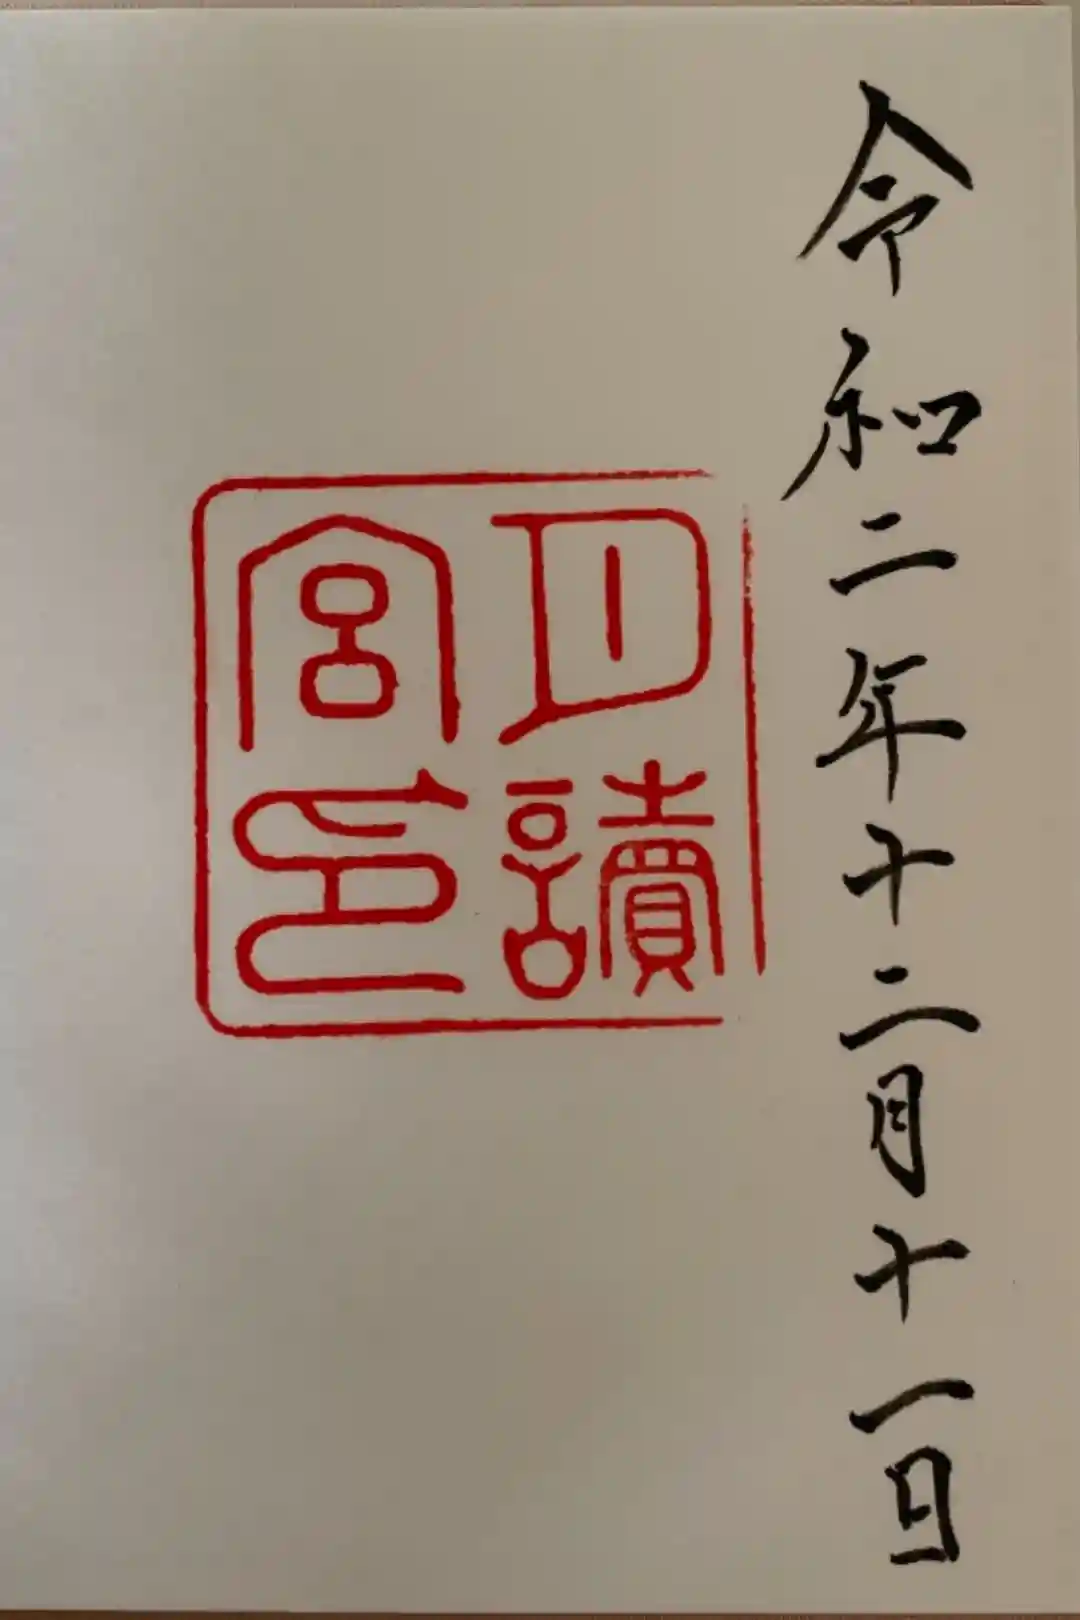 令和二年十二月十一日
月讀
宮印